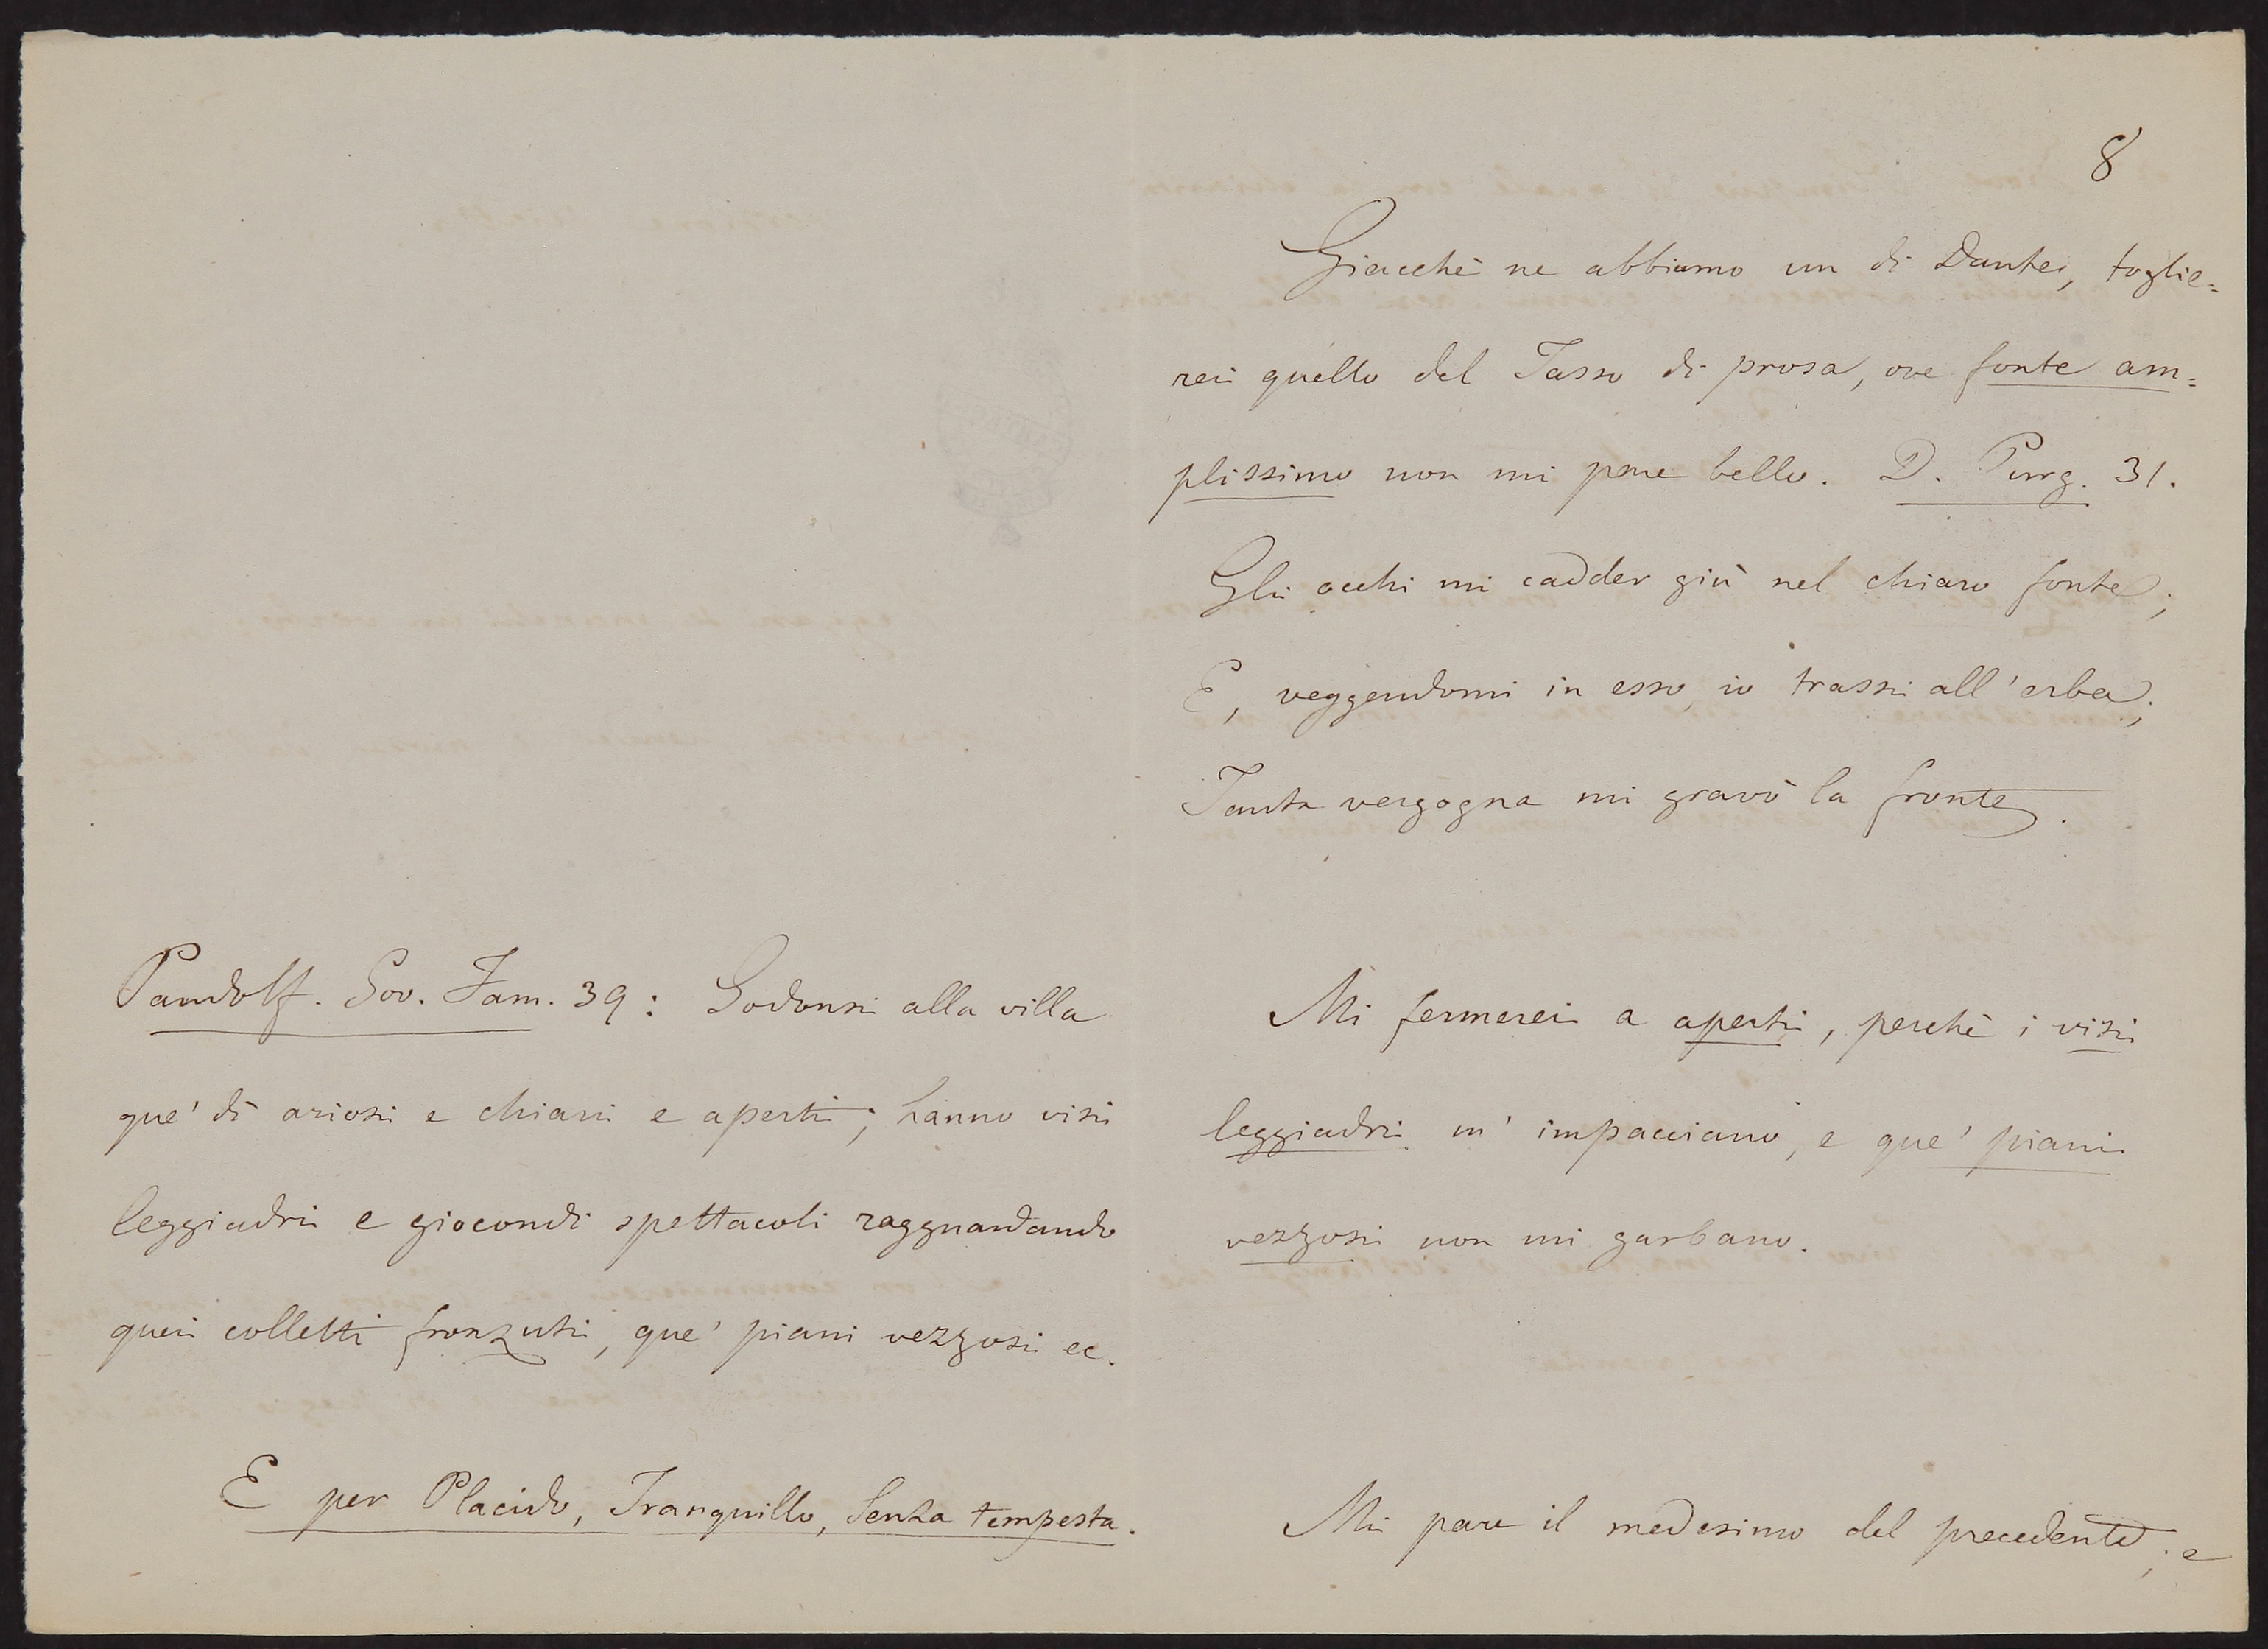 Pandolf. Gov. Fam. 39: Godonsi alla villa
que' dì ariosi e chiari e aperti; hanno visi
leggiadri e giocondi spettacoli ragguardando
quei colletti fronzuti, que' piani vezzosi ec.
E per Placido, Tranquillo, Senza tempesta.
8
Giacchè ne abbiamo un di Dante, toglie=
rei quello del Tasso di prosa, ove fonte am=
plissimo non mi pare bello. D. Purg. 31.
Gli occhi mi cadder giù nel chiaro fonte;
E, veggendomi in esso, io trassi all'erba;
Tanta vergogna mi gravò la fronte.
Mi fermerei a aperti, perchè i visi
leggiadri m'impacciano, e que' piani
vezzosi non mi garbano.
Mi pare il medesimo del precedente; e